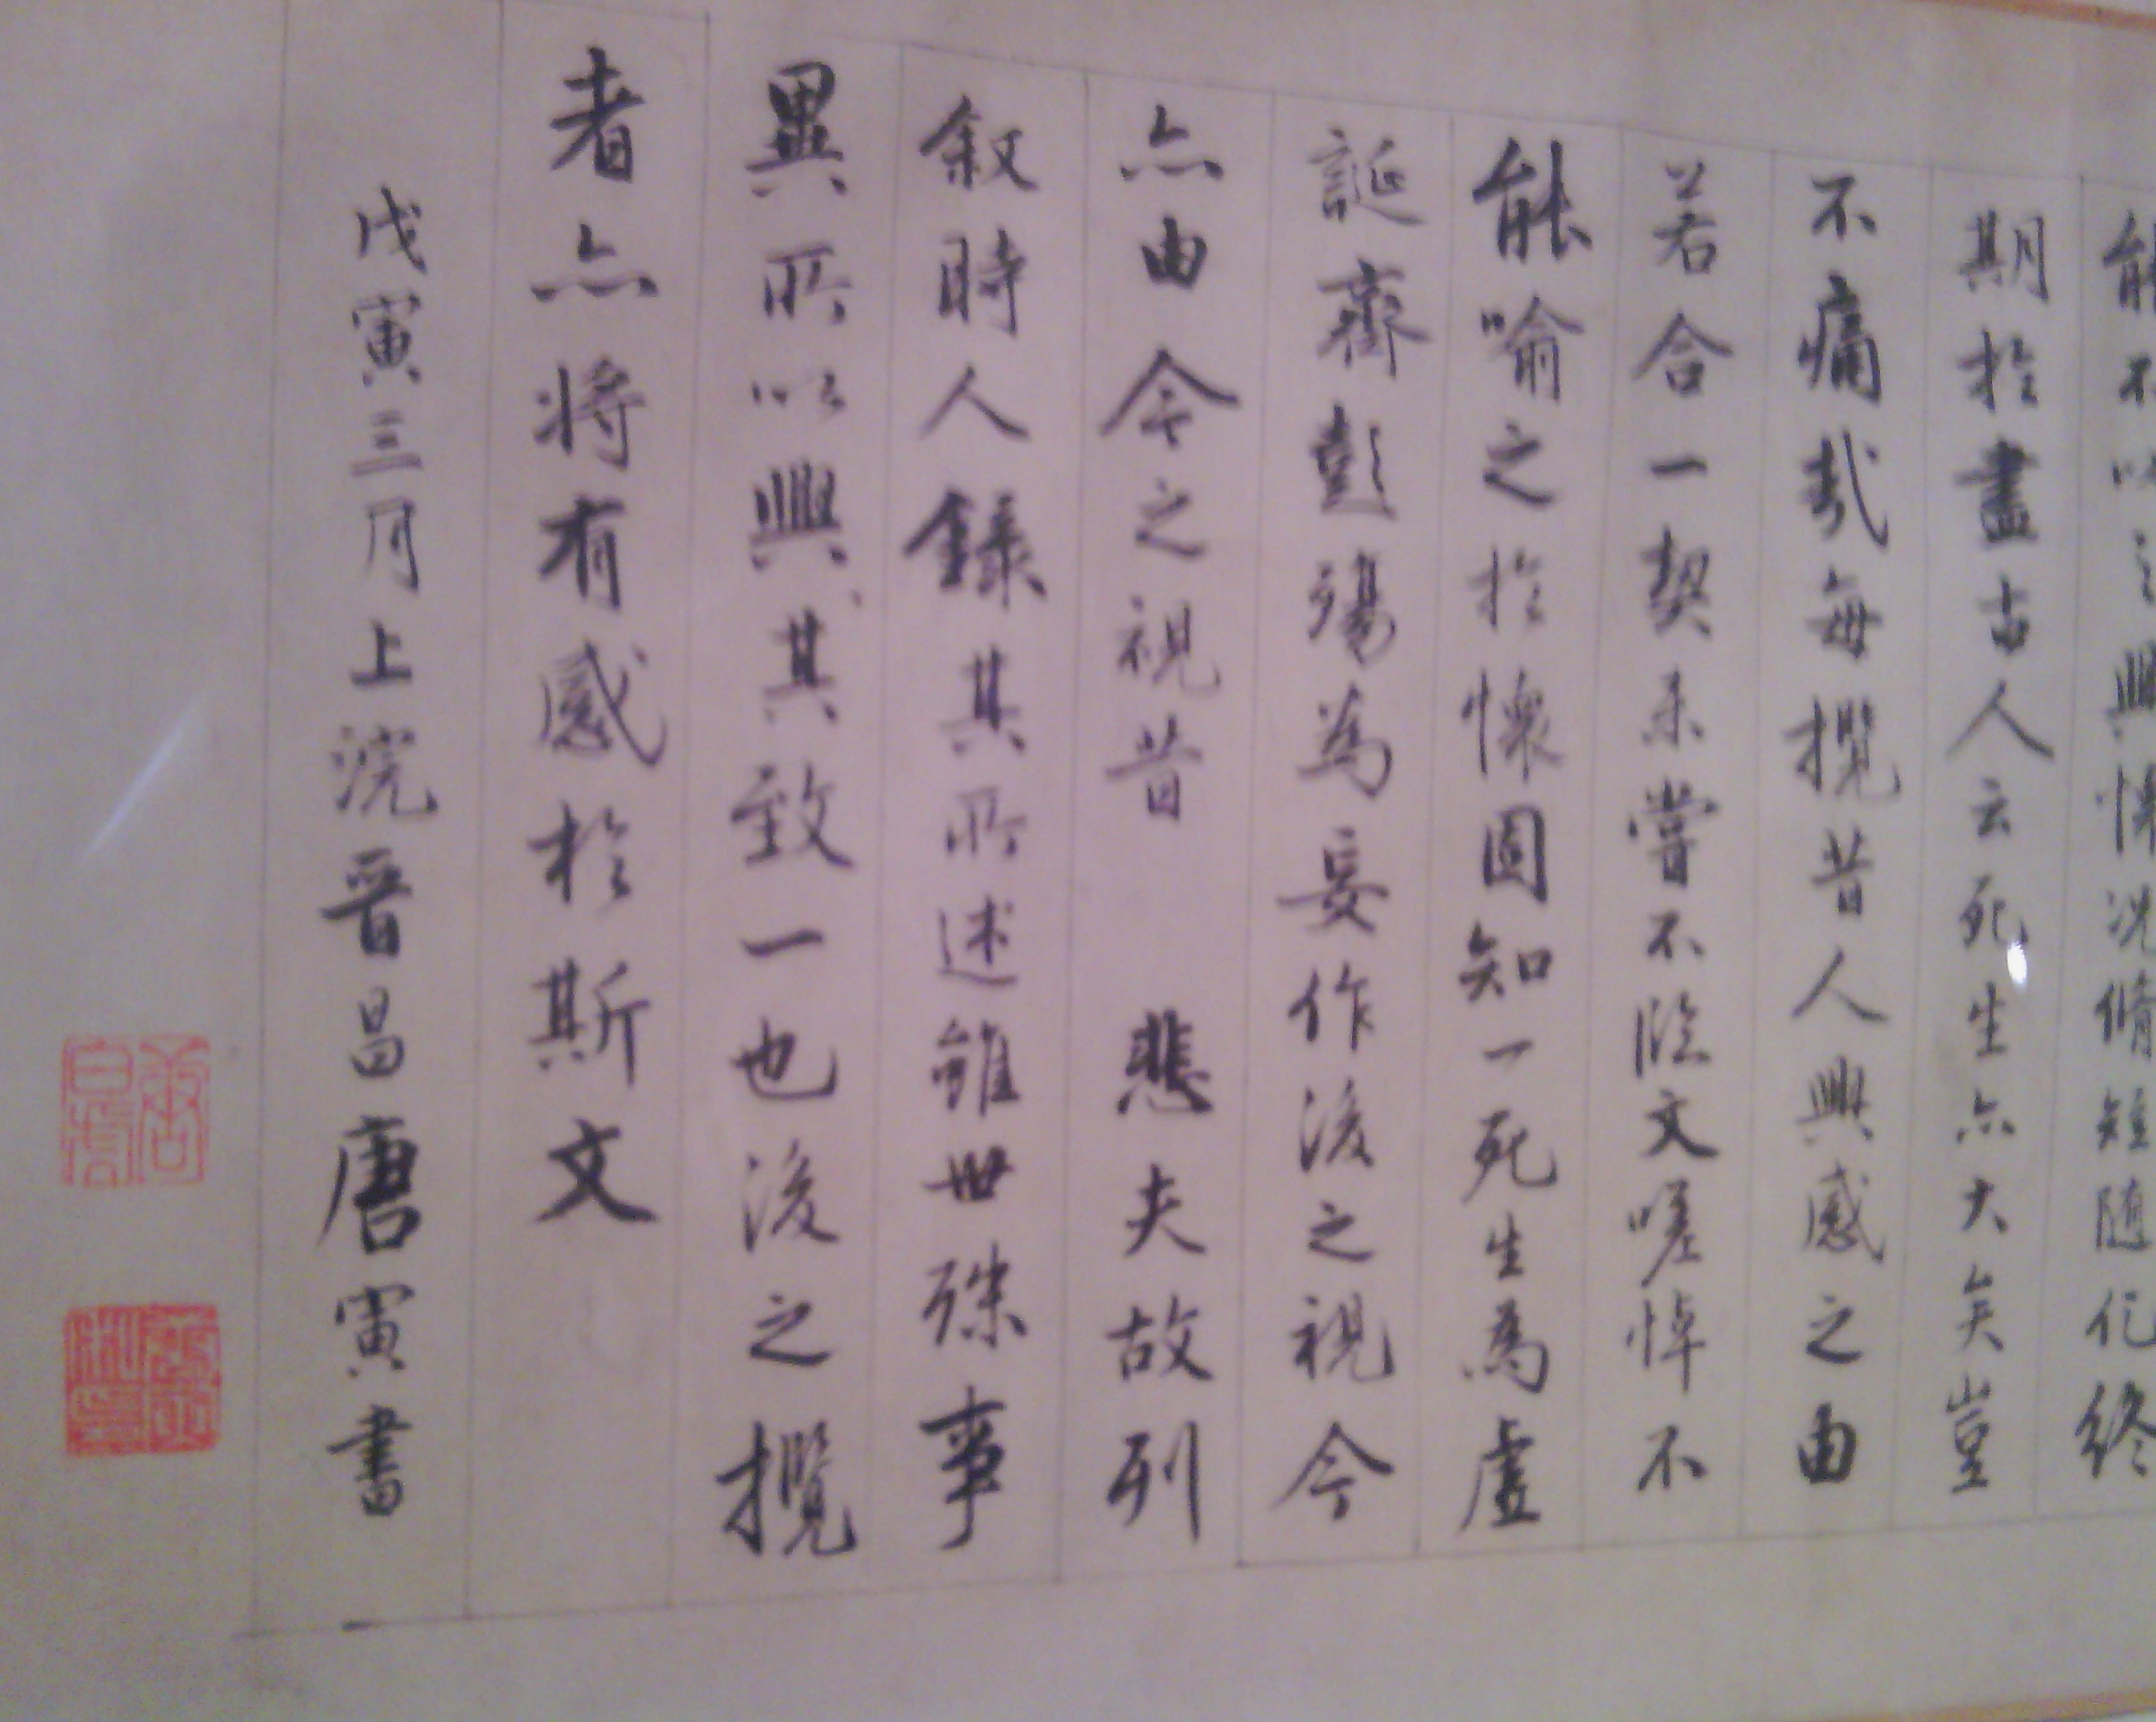 能不以之興懷況脩短随化終
期於盡古人云死生亦大矣豈
不痛哉每攬昔人興感之由
若合一契未嘗不臨文嗟悼不
能喻之於懷固知一死生為虛
誕齊彭殤為妄作後之視今
亦由今之視昔 悲夫故列
叙時人錄其所述雖世殊事
異所以興其致一也後之攬
者亦将有感於斯文
戊寅三月上浣晉昌唐寅書
唐白虎